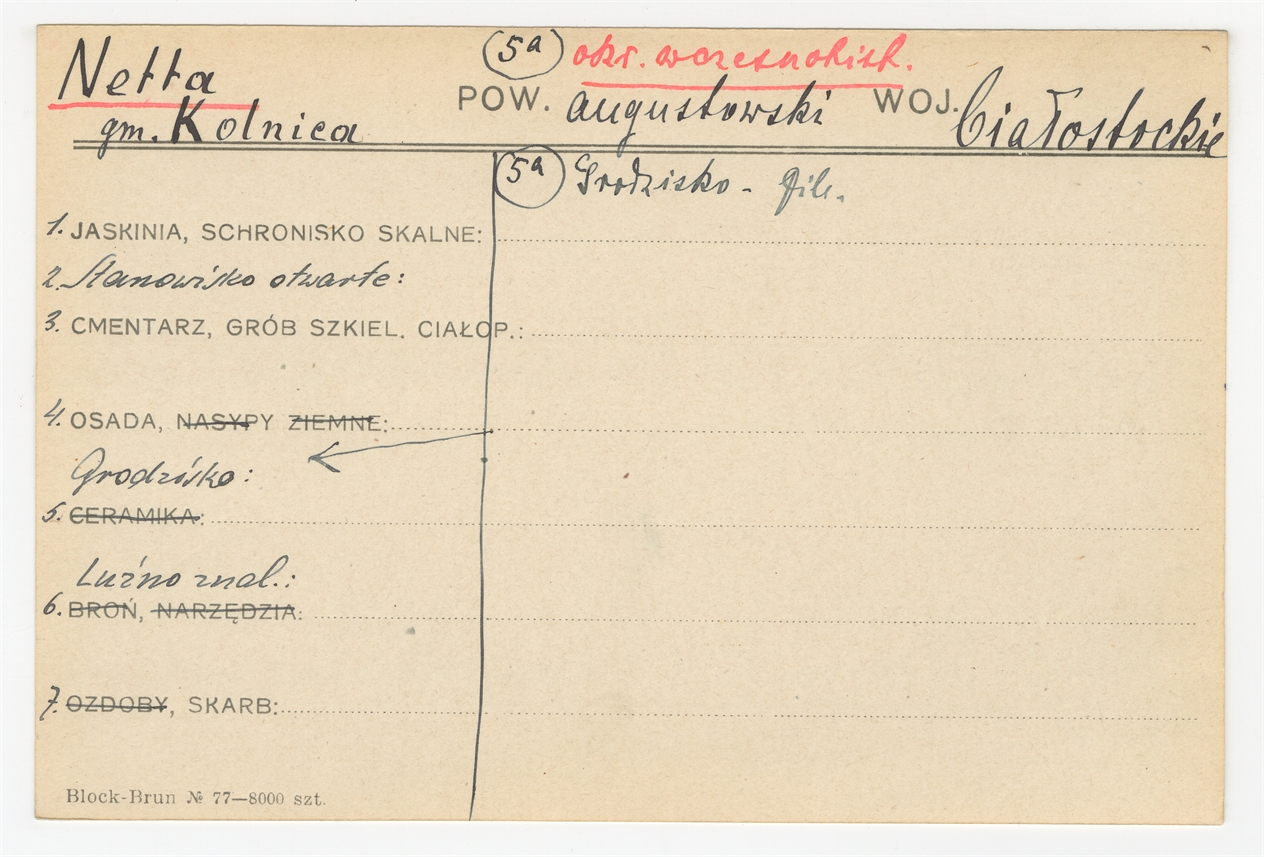 Netta
(5a) okr. wczesnohist.
gm. Kolnica POW. augustowski WOJ. białostockie
(5a) Grodzisko - file.
1. JASKINIA, SCHRONISKO SKALNE:
2. Stanowisko otwarte:
3. CMENTARZ, GRÓB SZKIEL. CIAŁOP.:
4. OSADA, NASYPY ZIEMNE:
Grodzisko:
5. CERAMIKA:
Luźno znal.:
6. BROŃ, NARZĘDZIA:
7. OZDOBY, SKARB:
Block-Brun № 77—8000 szt.